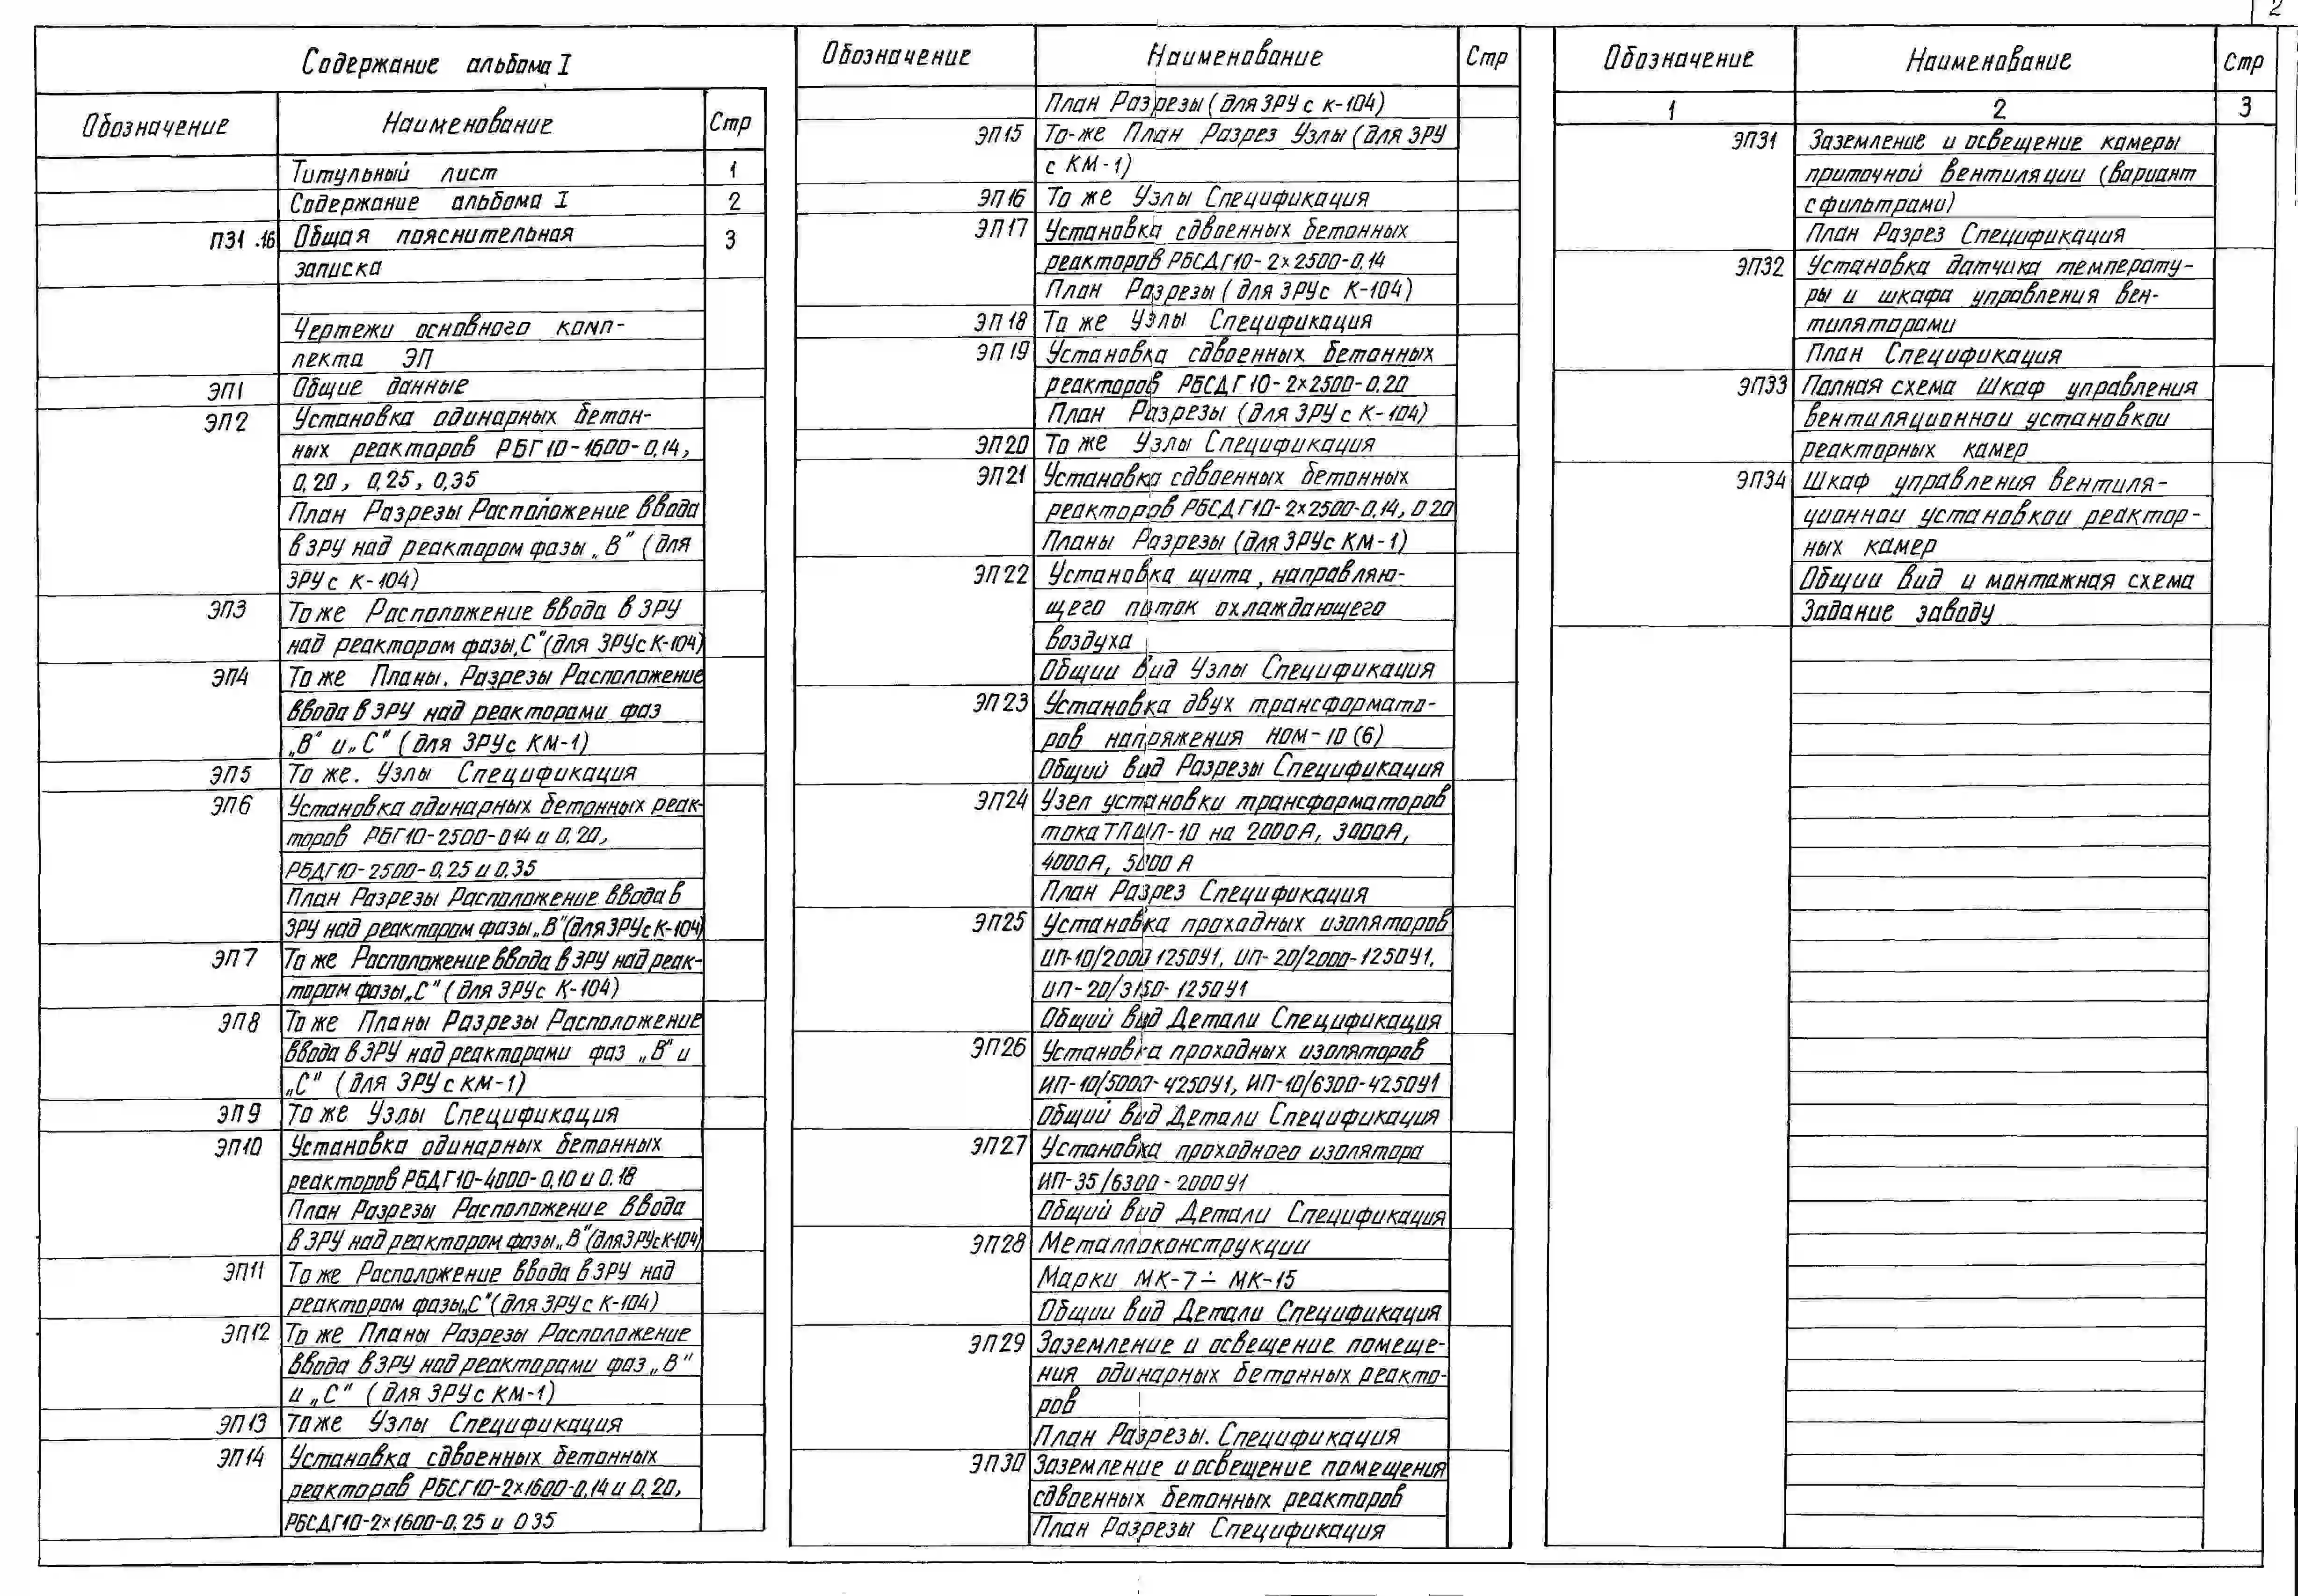 2
Содержание альбома I
Обозначение Наименование Стр
Титульный лист 1
Содержание альбома I 2
ПЗ1.16 Общая пояснительная 3
записка
Чертежи основного комп-
лекта ЭП
ЭП1 Общие данные
ЭП2 Установка одинарных бетон-
ных реакторов РБГ10-1600-0,14,
0,20, 0,25, 0,35
План Разрезы Расположение ввода
в ЗРУ над реактором фазы „В" (для
ЗРУ с К-104)
ЭП3 То же Расположение ввода в ЗРУ
над реактором фазы„С"(для ЗРУ с К-104)
ЭП4 То же Планы. Разрезы Расположение
ввода в ЗРУ над реакторами фаз
„В" и „С" (для ЗРУ с КМ-1)
ЭП5 То же. Узлы Спецификация
ЭП6 Установка одинарных бетонных реак-
торов РБГ10-2500-014 и 0,20,
РБДГ10-2500-0,25 и 0.35
План Разрезы Расположение ввода в
ЗРУ над реактором фазы„В"(для ЗРУ с К-104)
ЭП7 То же Расположение ввода в ЗРУ над реак-
тором фазы„С" (для ЗРУ с К-104)
ЭП8 То же Планы Разрезы Расположение
ввода в ЗРУ над реакторами фаз „В" и
„С" (для ЗРУ с КМ-1)
ЭП9 То же Узлы Спецификация
ЭП10 Установка одинарных бетонных
реакторов РБДГ10-4000-0,10 и 0.18
План Разрезы Расположение ввода
в ЗРУ над реактором фазы„В"(для ЗРУ с К-104)
ЭП11 То же Расположение ввода в ЗРУ над
реактором фазы„С"(для ЗРУ с К-104)
ЭП12 То же Планы Разрезы Расположение
ввода в ЗРУ над реакторами фаз „В"
и „С" (для ЗРУ с КМ-1)
ЭП13 То же Узлы Спецификация
ЭП14 Установка сдвоенных бетонных
реакторов РБСГ10-2×1600-0,14 и 0,20,
РБСДГ10-2×1600-0,25 и 035
Обозначение Наименование Стр
План Разрезы (для ЗРУ с К-104)
ЭП15 То-же План Разрез Узлы (для ЗРУ
с КМ-1)
ЭП16 То же Узлы Спецификация
ЭП17 Установка сдвоенных бетонных
реакторов РБСДГ10-2×2500-0,14
План Разрезы (для ЗРУ с К-104)
ЭП18 То же Узлы Спецификация
ЭП19 Установка сдвоенных бетонных
реакторов РБСДГ10-2×2500-0.20
План Разрезы (для ЗРУ с К-104)
ЭП20 То же Узлы Спецификация
ЭП21 Установка сдвоенных бетонных
реакторов РБСДГ10-2×2500-0.14, 0 20
Планы Разрезы (для ЗРУ с КМ-1)
ЭП22 Установка щита, направляю-
щего поток охлаждающего
воздуха
Общий вид Узлы Спецификация
ЭП23 Установка двух трансформато-
ров напряжения НОМ-10 (6)
Общий вид Разрезы Спецификация
ЭП24 Узел установки трансформаторов
тока ТПШЛ-10 на 2000А, 3000А,
4000А, 5000 А
План Разрез Спецификация
ЭП25 Установка проходных изоляторов
ИП-10/2000 1250У1, ИП-20/2000-1250У1,
ИП-20/3150-1250У1
Общий вид Детали Спецификация
ЭП26 Установка проходных изоляторов
ИП-10/5000-4250У1, ИП-10/6300-4250У1
Общий вид Детали Спецификация
ЭП27 Установка проходного изолятора
ИП-35/6300-2000У1
Общий вид Детали Спецификация
ЭП28 Металлоконструкции
Марки МК-7÷МК-15
Общий вид Детали Спецификация
ЭП29 Заземление и освещение помеще-
ния одинарных бетонных реакто-
ров
План Разрезы. Спецификация
ЭП30 Заземление и освещение помещения
сдвоенных бетонных реакторов
План Разрезы Спецификация
Обозначение Наименование Стр
1 2 3
ЭП31 Заземление и освещение камеры
приточной вентиляции (вариант
с фильтрами)
План Разрез Спецификация
ЭП32 Установка датчика температу-
ры и шкафа управления вен-
тиляторами
План Спецификация
ЭП33 Полная схема Шкаф управления
вентиляционной установкой
реакторных камер
ЭП34 Шкаф управления вентиля-
ционной установкой реактор-
ных камер
Общий вид и монтажная схема
Задание заводу